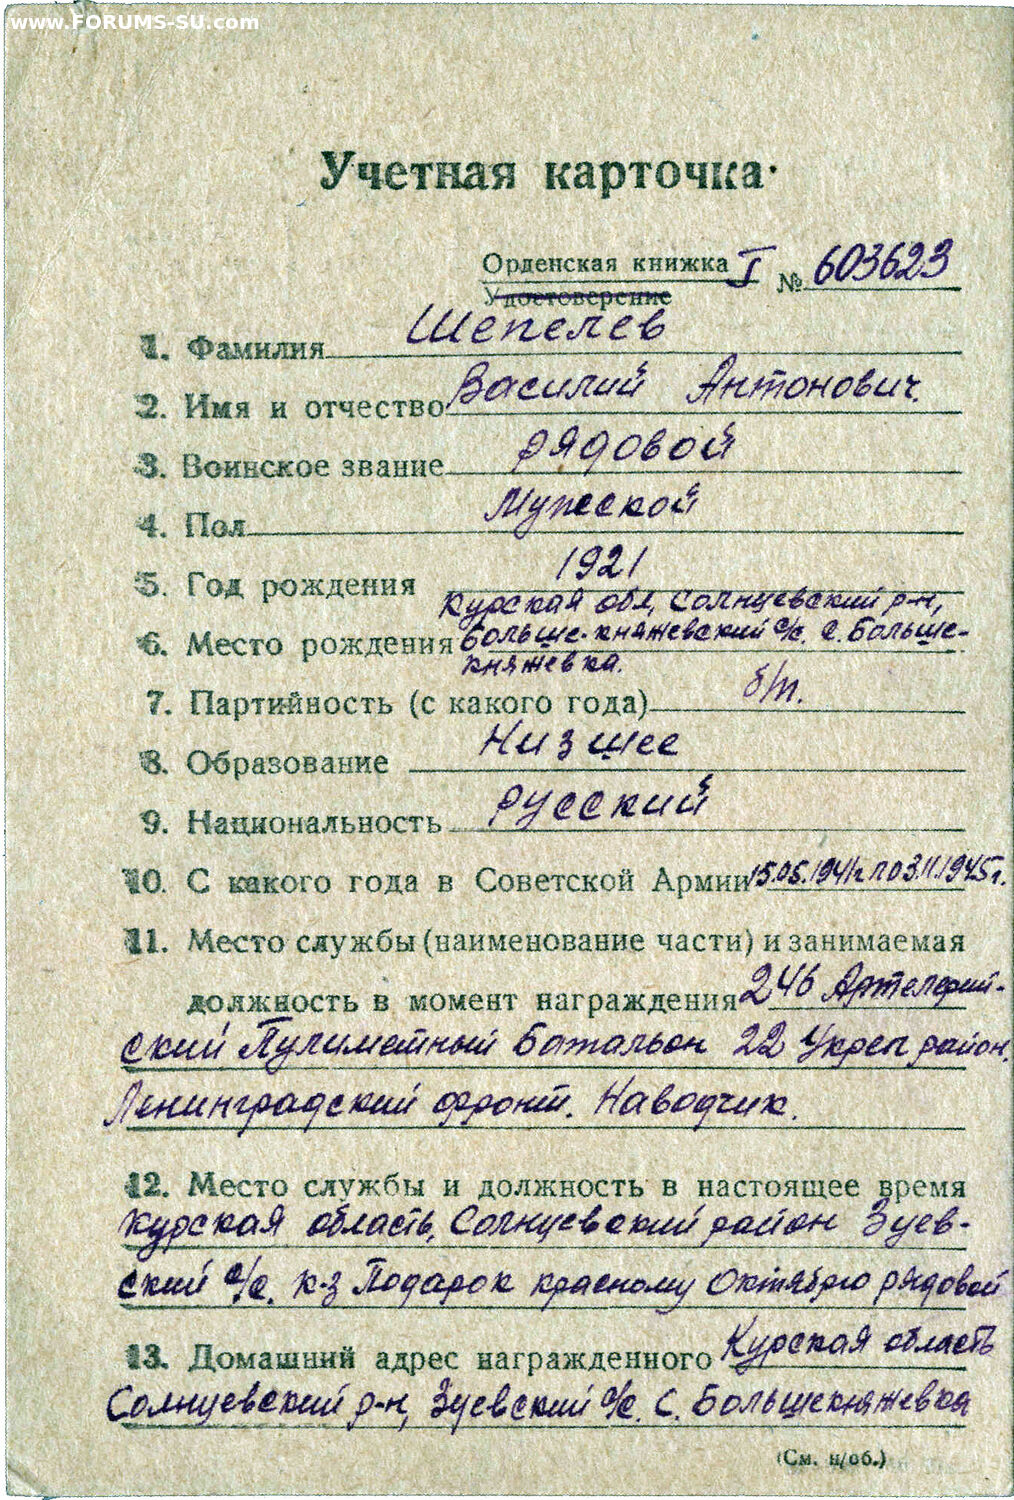 www.FORUMS-SU.com
Учетная карточка
Орденская книжка I № 603623
Удостоверение
1. Фамилия Шепелев
2. Имя и отчество Василий Антонович.
3. Воинское звание рядовой
4. Пол Мужской
5. Год рождения 1921
Курская обл, Солнцевский р-н,
6. Место рождения больше-княжевский с/с. с. Больше-
княжевка.
7. Партийность (с какого года) б/п.
8. Образование Низшее
9. Национальность русский
10. С какого года в Советской Армии 15.05.1941г по 3.11.1945г.
11. Место службы (наименование части) и занимаемая
должность в момент награждения 246 Артелерий-
ский Пулиметный Батальон 22 Укреп район.
Ленинградский фронт. Наводчик.
12. Место службы и должность в настоящее время
Курская область, Солнцевский район Зуев-
ский с/с. к-з Подарок красному Октябрю рядовой
13. Домашний адрес награжденного Курская область
Солнцевский р-н, Зуевский с/с. с. Большекняжевка
(См. н/об.)